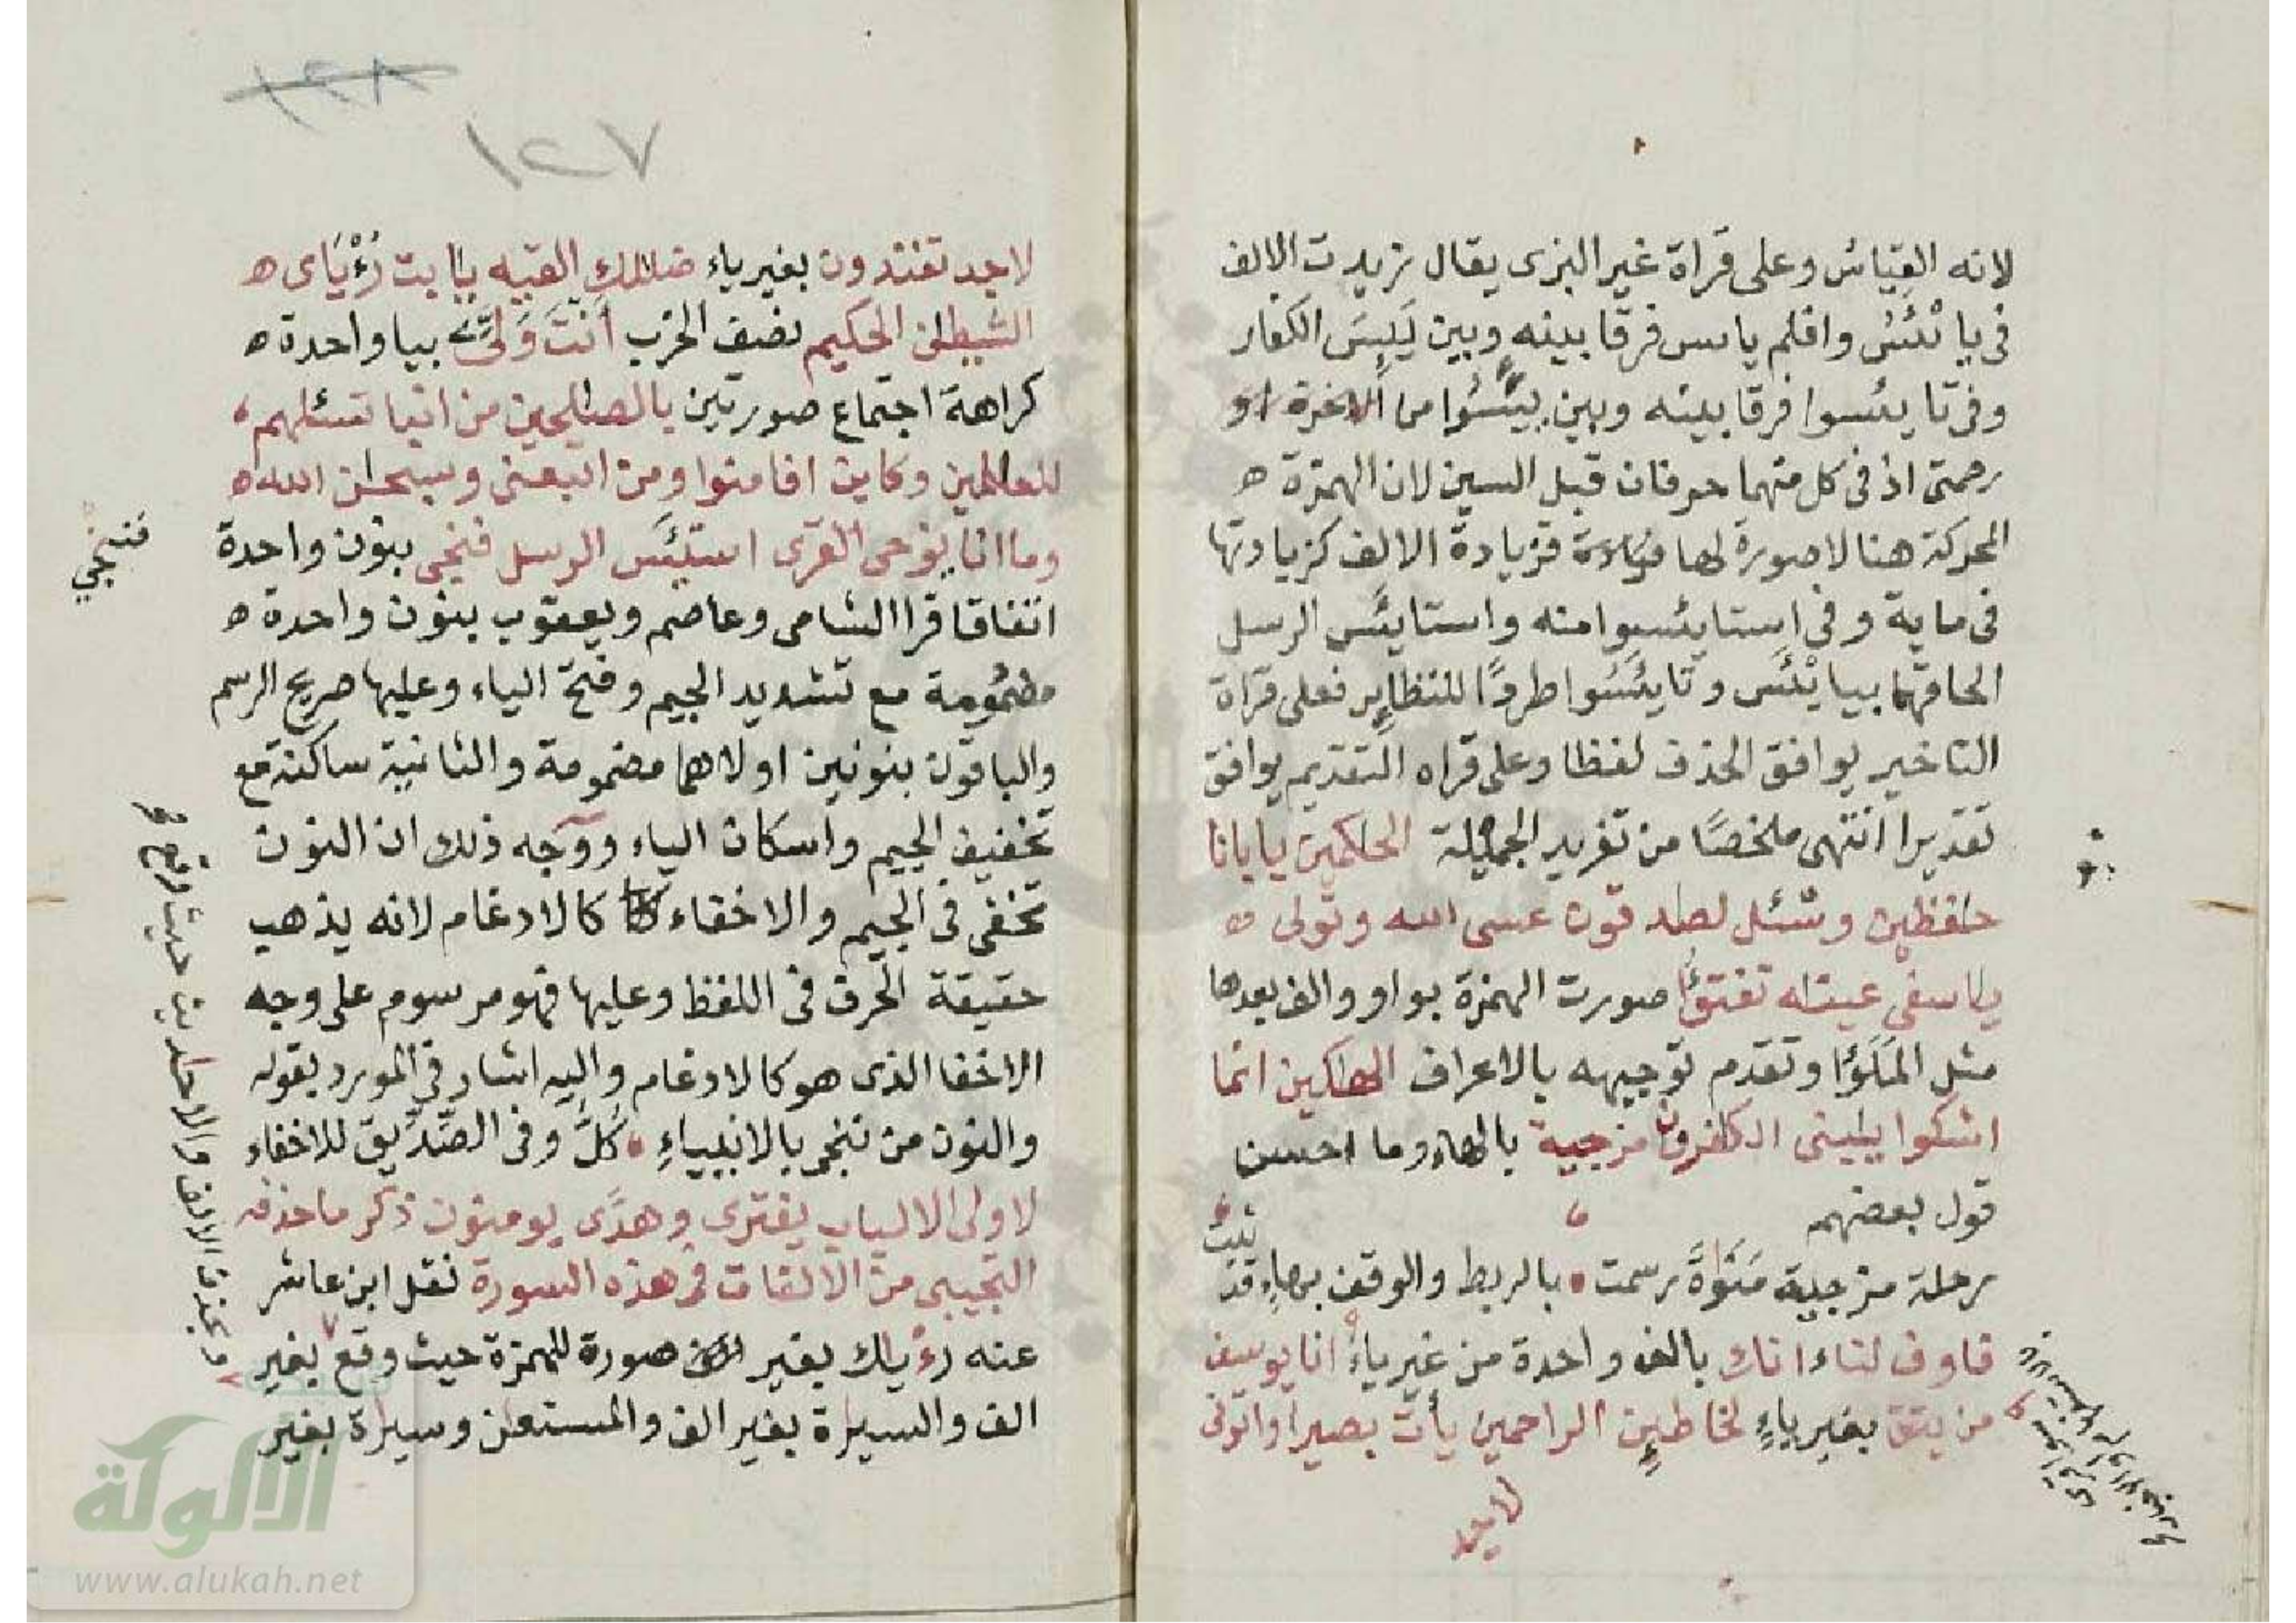 لانه القياس وعلى قراة غير البزى يقال زيدت الالف
فى يا يْئَسُ وافلم يا يس فرقا بينه وبين يَبِسَ الكفار
وفى تا يئسوا فرقا بينه وبين يَئِسُوا من الاخرة او
رحمتى اذ فى كل منهما حرفان قبل السين لان الهمزة ه
المحركة هنا لا صورة لها فزيادة الالف كزيادتها
فى ماية وفى استايئسوا منه واستايئَس الرسل
الحاقهما بييايْئَس وتايئَسُوا طردًا للنظاير فعلى قراة
التاخير يوافق الحذف لفظا وعلى قراه التقديم يوافق
تقديرا انتهى ملخصًا من تغريد الجميلة الحاكمين يابانا
حفظين وسْئل لصدقون عسى الله وتولى ه
ياسفى عيناه تفتؤا صورت الهمزة بواو والف بعدها
مثل المَلَؤا وتقدم توجيهه بالاعراف الهلكين انما
اشكوا يبنى الكفرون مزجية بالهاء وما احسن
قول بعضهم
رحلة مزجية مَنَوةً رسمت • بالربط والوقف بهاءٍ قد
ثبت
فاوف لنا اءنك بالف واحدة من غير ياء انا يوسف
من يتق بغير ياءٍ لخاطين الراحمين يأت بصيرا واتونى
لاجد
١٢٨
١٢٧
لاجد تفندون بغير ياء ضللك القيه يابت رُءْيَاى ه
الشيطن الحكيم نصف الحزب أنتَ وَلِىِّ بيا واحدة ه
كراهة اجتماع صورتين بالصلحين من انبا تسئلهم
للعلمين وكاين افامنوا ومن اتبعنى وسبحن الله ه
وما انا يوحى القرى استيئَس الرسل فنجى بنون واحدة
فننجي
اتفاقا قرا الشامى وعاصم ويعقوب بنون واحدة ه
مضمومة مع تشديد الجيم وفتح الياء وعليها صريح الرسم
والباقون بنونين اولاهما مضمومة والثانية ساكنة مع
تخفيف الجيم واسكان الياء ووجه ذلك ان النون
تخفى فى الجيم والاخفاء كالادغام لانه يذهب
حقيقة الحرف فى اللفظ وعليها فهو مرسوم على وجه
الاخفا الذى هو كالادغام واليه اشار فى المورد بقوله
والنون من ننجى بالانبياءِ • كُلٌّ وفى الصّدِّيق للاخفاء
لاولى الالباب يفترى وهدًى يومنون ذكر ما حذفه
التجيبى من الالفات فى هذه السورة نقل ابن عاشر
عنه رءْياك بغير صورة للهمزة حيث وقع بغير
وبحذف الالف والاحاديث حيث وقع
الف والسيارة بغير الف والمستعان وسيارة بغير
الألوكة
www.alukah.net